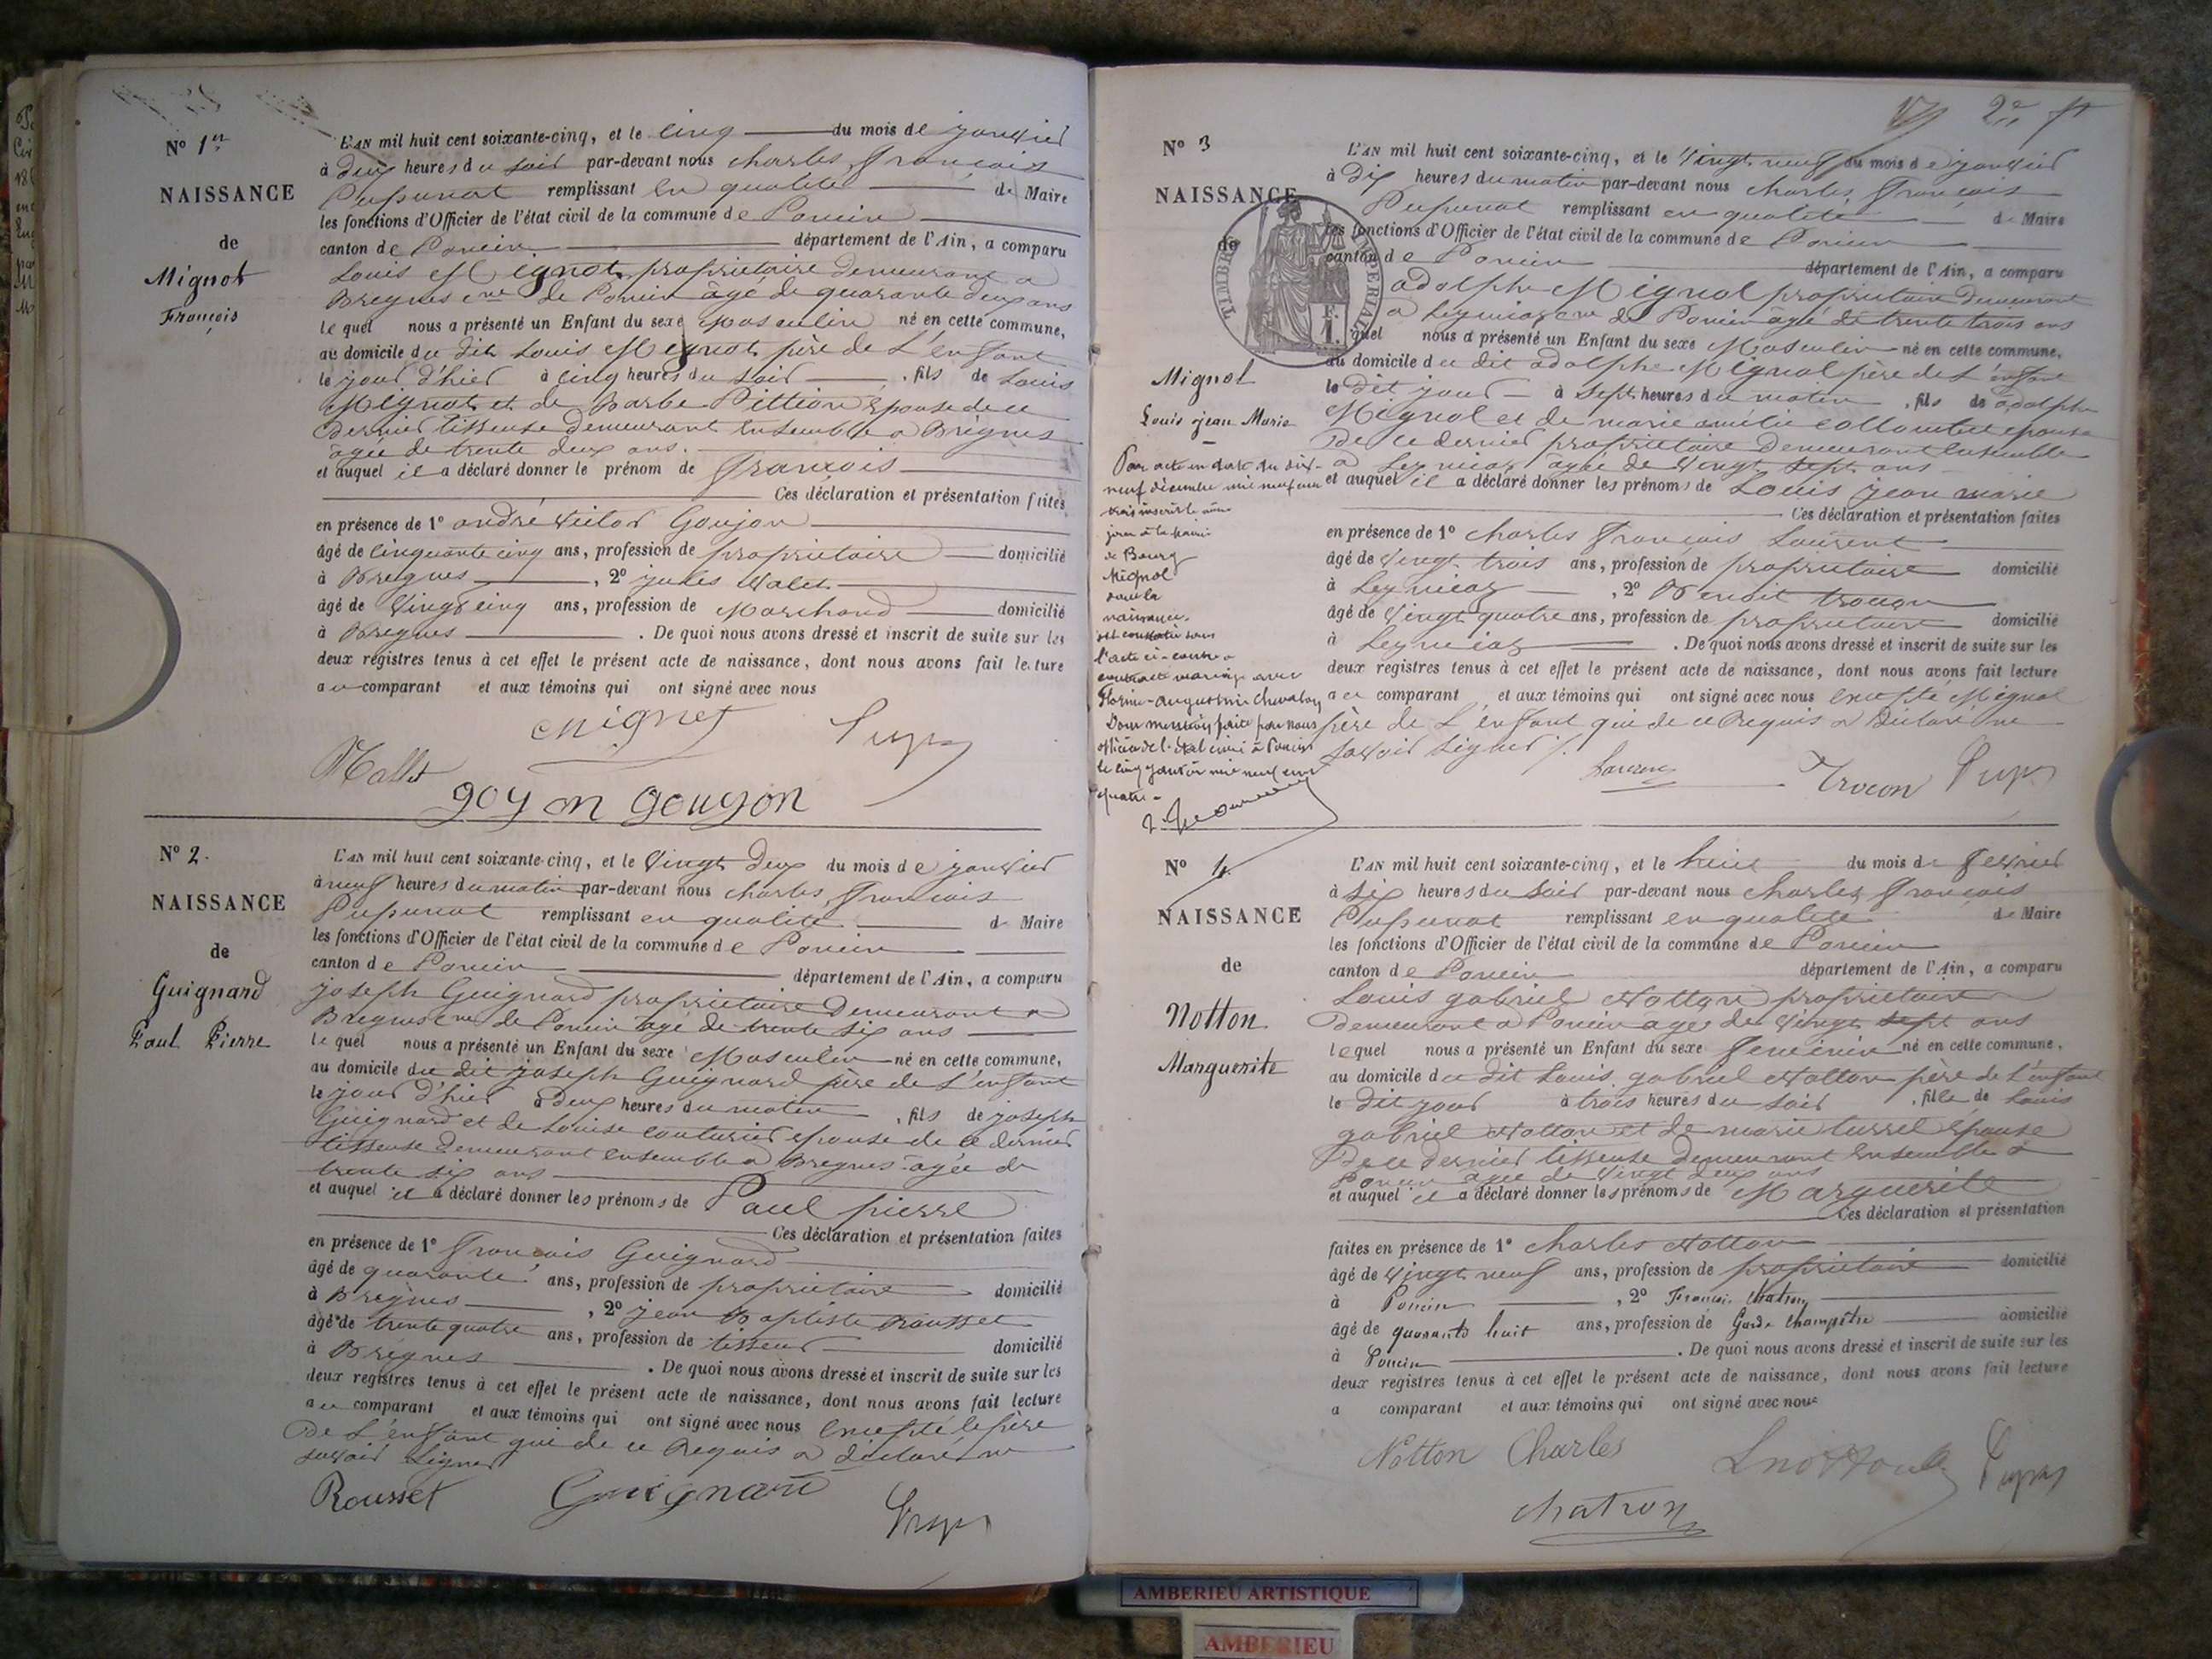 N° 1er
NAISSANCE
de
Mignot
François
L'AN mil huit cent soixante-cinq, et le cinq du mois de janvier
à deux heures du soir par-devant nous charles, françois
Pupunat remplissant en qualité de Maire
les fonctions d'Officier de l'état civil de la commune de Poncin
canton de Poncin département de l'Ain, a comparu
Louis Mignot, propriétaire demeurant a
Bregnes cne de Poncin âgé de quarante deux ans
lequel nous a présenté un Enfant du sexe Masculin né en cette commune,
au domicile du dit Louis Mignot père de L'enfant
le jour d'hier à cinq heures du soir, fils de Louis
Mignot et de Barbe Pittion épouse de ce
dernier tisseuse demeurant ensemble a Brègnes
agée de trente deux ans.
et auquel il a déclaré donner le prénom de françois
Ces déclaration et présentation faites
en présence de 1° andré victor Goujon
âgé de cinquante cinq ans, profession de propriétaire domicilié
à Bregnes, 2° jules Malet
âgé de vingt cinq ans, profession de Marchand domicilié
à Bregnes. De quoi nous avons dressé et inscrit de suite sur les
deux registres tenus à cet effet le présent acte de naissance, dont nous avons fait lecture
au comparant et aux témoins qui ont signé avec nous
Mignot
Mallet
goyon gougon
N° 2.
NAISSANCE
de
Guignard
Paul Pierre
L'AN mil huit cent soixante-cinq, et le vingt deux du mois de janvier
à neuf heures du matin par-devant nous charles, françois
Pupunat remplissant en qualité de Maire
les fonctions d'Officier de l'état civil de la commune de Poncin
canton de Poncin département de l'Ain, a comparu
joseph Guignard propriétaire demeurant a
Bregnes cne de Poncin âgé de trente six ans
lequel nous a présenté un Enfant du sexe Masculin né en cette commune,
au domicile du dit joseph Guignard père de L'enfant
le jour d'hier à deux heures du matin, fils de joseph
Guignard et de Louise couturier epouse de ce dernier
tisseuse demeurant ensemble a Bregnes agée de
trente six ans
et auquel il a déclaré donner les prénoms de Paul pierre
Ces déclaration et présentation faites
en présence de 1° françois Guignard
âgé de quarante ans, profession de propriétaire domicilié
à Bregnes, 2° jean Baptiste Rousset
âgé de trente quatre ans, profession de tisseur domicilié
à Brègnes. De quoi nous avons dressé et inscrit de suite sur les
deux registres tenus à cet effet le présent acte de naissance, dont nous avons fait lecture
au comparant et aux témoins qui ont signé avec nous excepté le père
de L'enfant qui de ce requis a déclaré ne
savoir signer
Rousset Guignard
2e ft
N° 3
NAISSANCE
de
TIMBRE IMPERIAL
1 F.
Mignol
Louis jean Marie
Par acte en date du dix-
neuf décembre mil neuf cent
trois inscrit le même
jour à la mairie
de Bourg
Mignol
dont la
naissance
est constatée dans
l'acte ci-contre a
contracté mariage avec
Augustine Chevalon
Dont mention faite par nous
officier de l'état civil à Poncin
le cinq janvier mil neuf cent
quatre
L'AN mil huit cent soixante-cinq, et le vingt neuf du mois de janvier
à Dix heures du matin par-devant nous charles, françois
Pupunat remplissant en qualité de Maire
les fonctions d'Officier de l'état civil de la commune de Poncin
canton de Poncin département de l'Ain, a comparu
adolphe Mignol propriétaire demeurant
a Leymiaz cne de Poncin âgé de trente trois ans
lequel nous a présenté un Enfant du sexe Masculin né en cette commune,
au domicile du dit adolphe Mignol père de L'enfant
le dit jour à sept heures du matin, fils de adolphe
Mignol et de marie amélie collombet epouse
de ce dernier propriétaire demeurant ensemble
a Leymiaz agée de vingt sept ans
et auquel il a déclaré donner les prénoms de Louis jean marie
Ces déclaration et présentation faites
en présence de 1° charles françois Laurent
âgé de vingt trois ans, profession de propriétaire domicilié
à Leymiaz, 2° Benoit trocon
âgé de vingt quatre ans, profession de propriétaire domicilié
à Leymiaz. De quoi nous avons dressé et inscrit de suite sur les
deux registres tenus à cet effet le présent acte de naissance, dont nous avons fait lecture
au comparant et aux témoins qui ont signé avec nous excepté Mignol
père de L'enfant qui de ce requis a déclaré ne
savoir signer
Laurent Trocon
N° 4.
NAISSANCE
de
Notton
Marguerite
L'AN mil huit cent soixante-cinq, et le huit du mois de fevrier
à six heures du soir par-devant nous charles, françois
Pupunat remplissant en qualité de Maire
les fonctions d'Officier de l'état civil de la commune de Poncin
canton de Poncin département de l'Ain, a comparu
Louis gabriel Notton propriétaire
demeurant a Poncin age de vingt sept ans
lequel nous a présenté un Enfant du sexe feminin né en cette commune,
au domicile du dit Louis, gabriel Notton père de L'enfant
le dit jour à trois heures du soir, fille de Louis
gabriel Notton et de marie turrel épouse
de ce dernier tisseuse demeurant ensemble a
Poncin agée de vingt deux ans
et auquel il a déclaré donner les prénoms de Marguerite
Ces déclaration et présentation
faites en présence de 1° charles Notton
âgé de vingt neuf ans, profession de propriétaire domicilié
à Poncin, 2° François Chatron
âgé de quarante huit ans, profession de Garde Champêtre domicilié
à Poncin. De quoi nous avons dressé et inscrit de suite sur les
deux registres tenus à cet effet le présent acte de naissance, dont nous avons fait lecture
a comparant et aux témoins qui ont signé avec nous
Notton Charles
chatron
AMBERIEU ARTISTIQUE
AMBERIEU